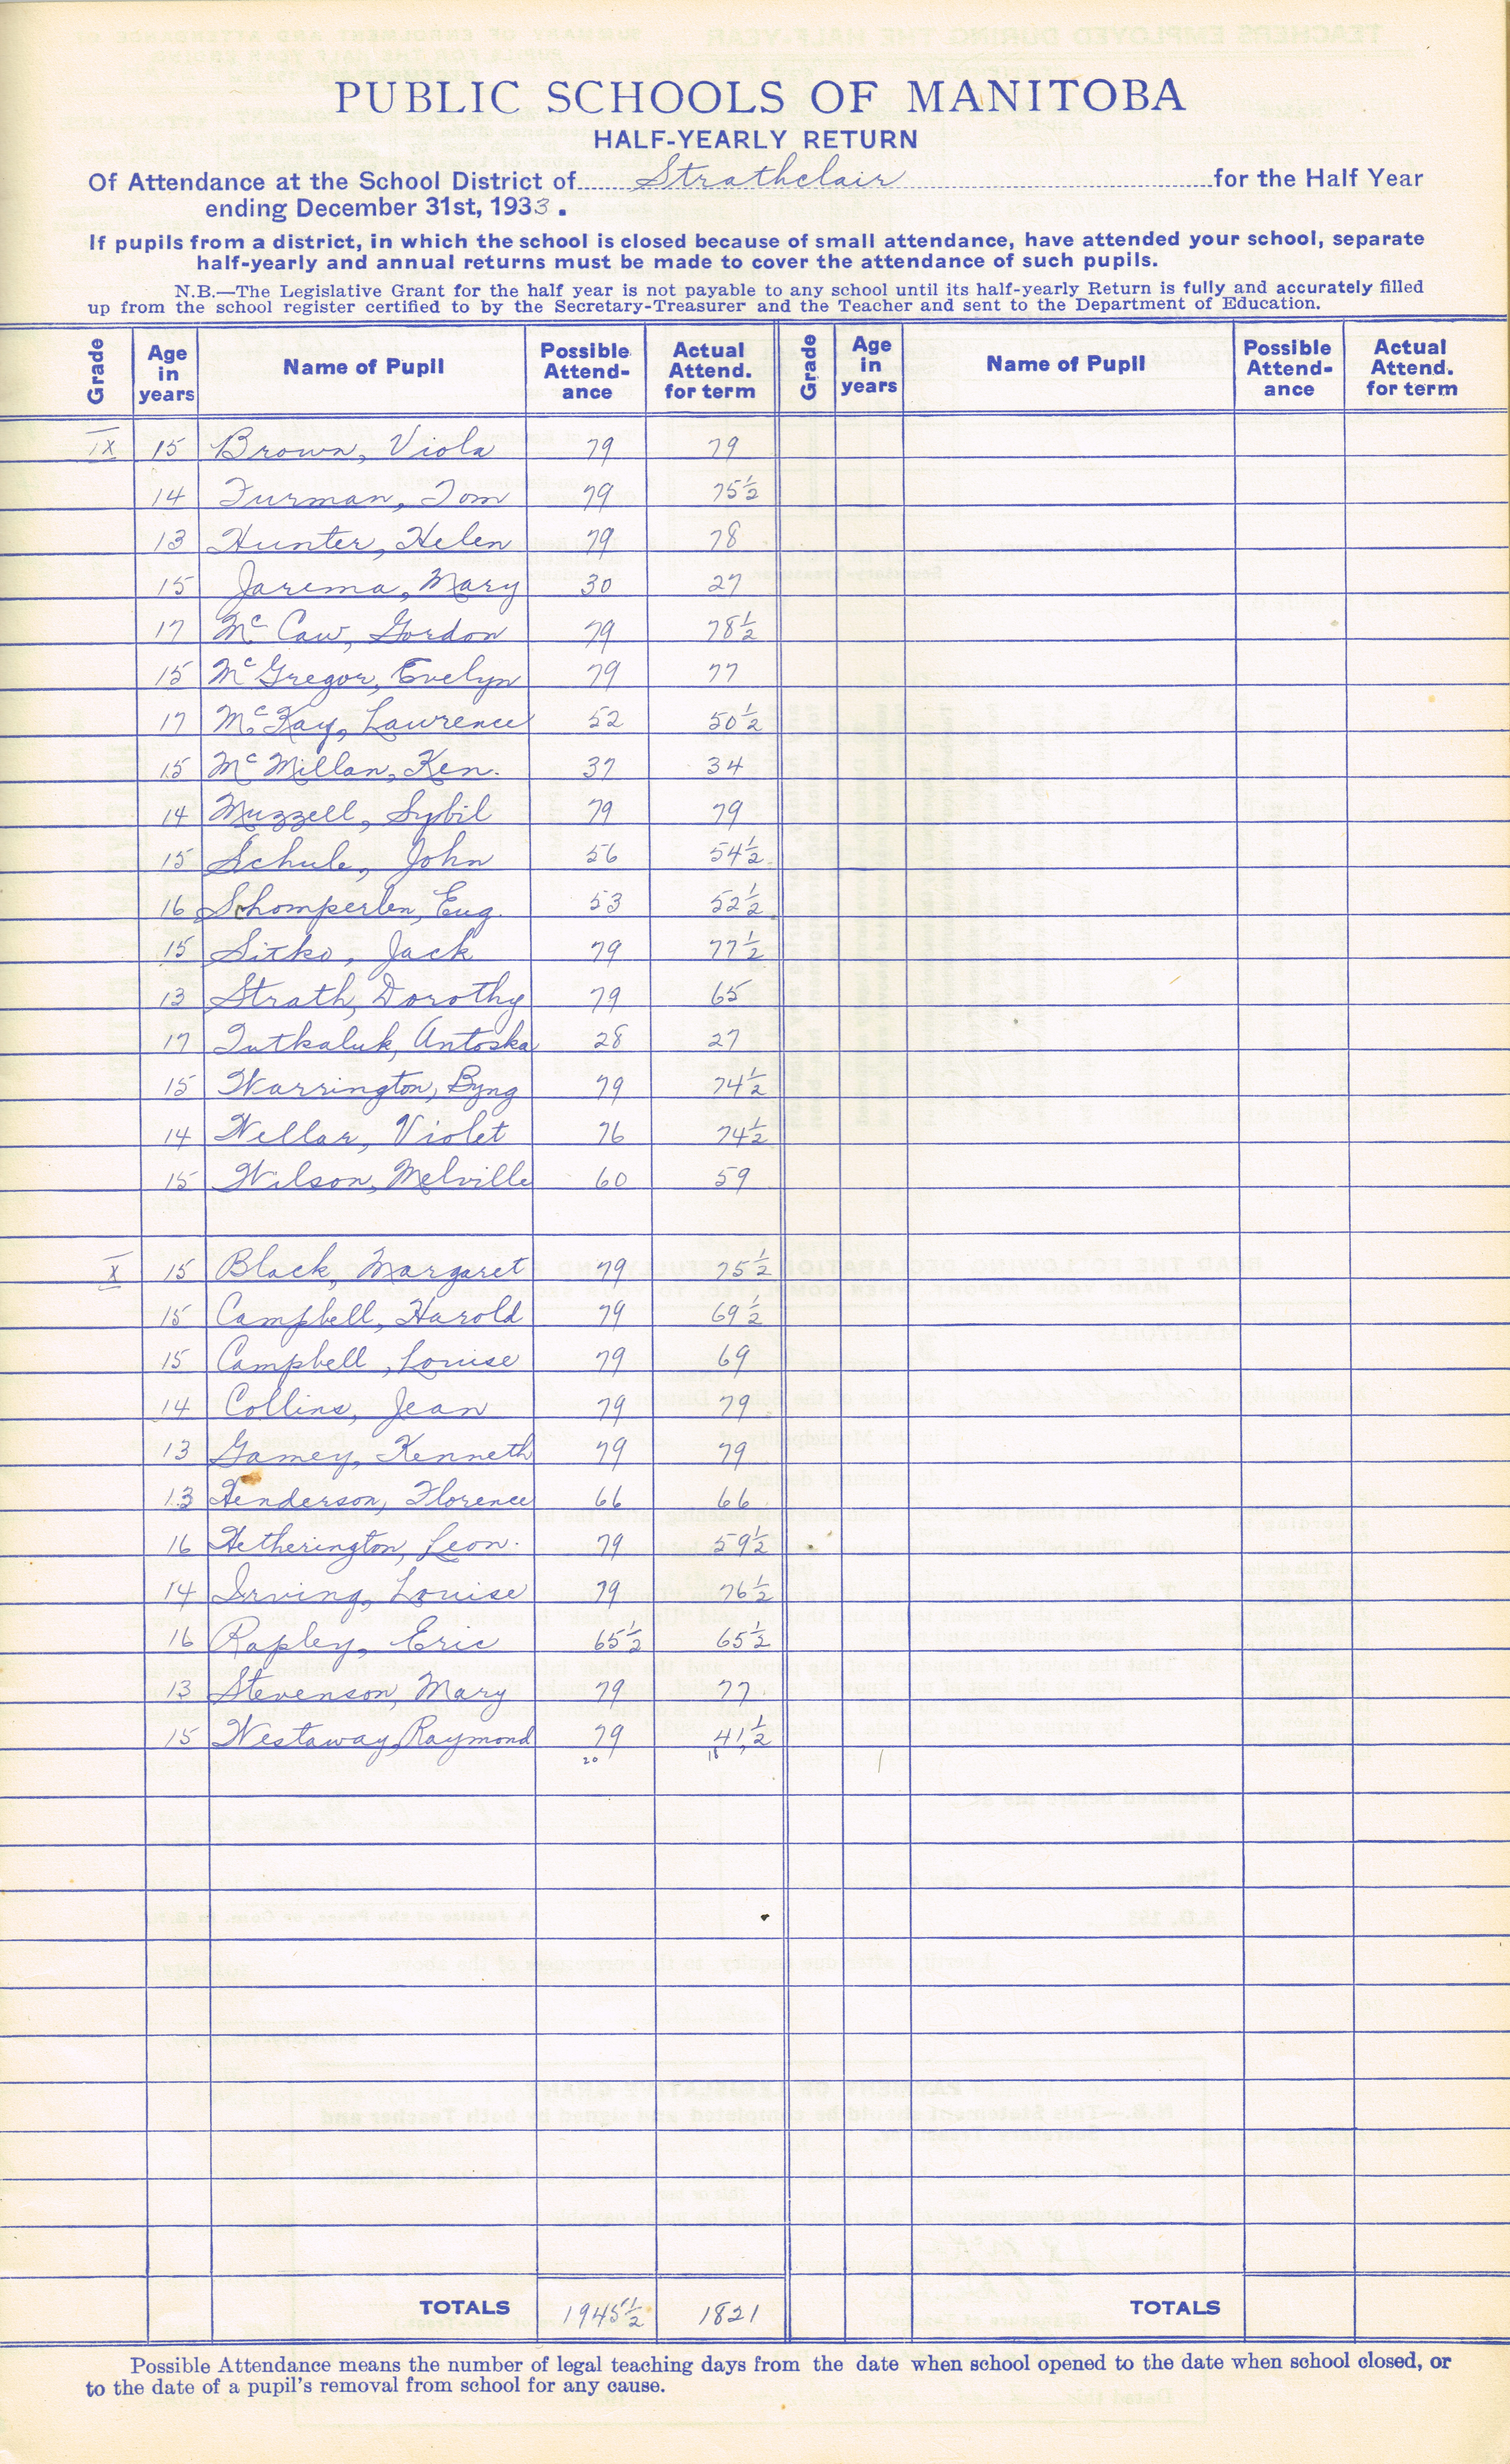 PUBLIC SCHOOLS OF MANITOBA
HALF-YEARLY RETURN
Of Attendance at the School District of Strathclair for the Half Year
ending December 31st, 1933.
If pupils from a district, in which the school is closed because of small attendance, have attended your school, separate
half-yearly and annual returns must be made to cover the attendance of such pupils.
N.B.—The Legislative Grant for the half year is not payable to any school until its half-yearly Return is fully and accurately filled
up from the school register certified to by the Secretary-Treasurer and the Teacher and sent to the Department of Education.
Grade Age in years Name of Pupil Possible Attend-ance Actual Attend. for term Grade Age in years Name of Pupil Possible Attend-ance Actual Attend. for term
IX 15 Brown, Viola 79 79
14 Furman, Tom 79 75½
13 Hunter, Helen 79 78
15 Jarema, Mary 30 27
17 McCaw, Gordon 79 78½
15 McGregor, Evelyn 79 77
17 McKay, Lawrence 52 50½
15 McMillan, Ken. 37 34
14 Muzzell, Sybil 79 79
15 Schule, John 56 54½
16 Schomperlen, Eug. 53 52½
15 Sitko, Jack 79 77½
13 Strath, Dorothy 79 65
17 Tutkaluk, Antoska 28 27
15 Warrington, Byng 79 74½
14 Wellar, Violet 76 74½
15 Wilson, Melville 60 59
X 15 Black, Margaret 79 75½
15 Campbell, Harold 79 69½
15 Campbell, Louise 79 69
14 Collins, Jean 79 79
13 Gamey, Kenneth 79 79
13 Henderson, Florence 66 66
16 Hetherington, Leon. 79 59½
14 Irving, Louise 79 76½
16 Rapley, Eric 65½ 65½
13 Stevenson, Mary 79 77
15 Westaway, Raymond 79 41½
20 18
TOTALS 1945½ 1821 TOTALS
Possible Attendance means the number of legal teaching days from the date when school opened to the date when school closed, or
to the date of a pupil's removal from school for any cause.